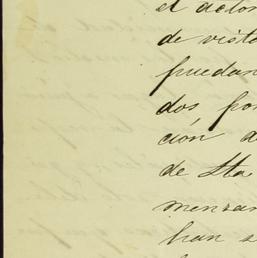 el actos
de vist
puedan
dos por
ción d
de Sta
menzar
han s